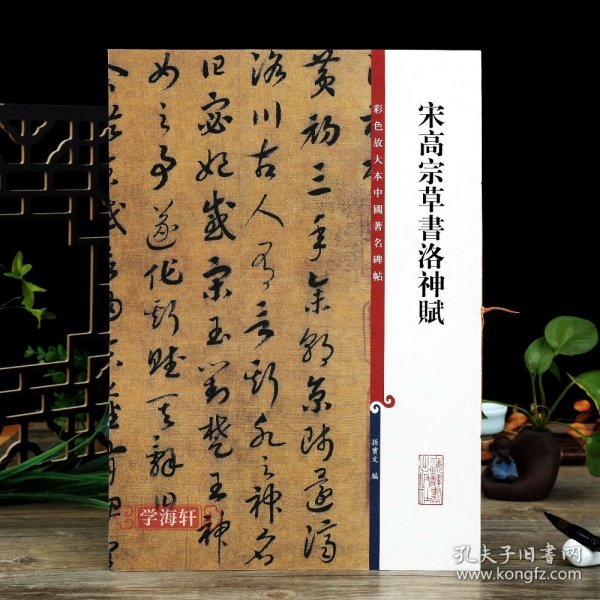 宋高宗草書洛神賦
彩色放大本中國著名碑帖
孫寶文 編
黄初三年余朝京師還濟
洛川古人有言斯水之神名
曰宓妃感宋玉對楚王神
女之事遂作斯賦其辭曰
学海轩
孔夫子旧书网
www.kongfz.com